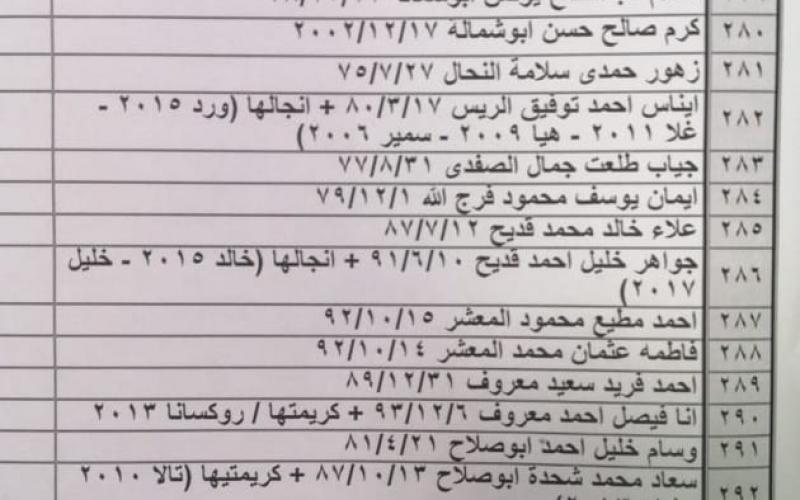 ٢٨٠ كرم صالح حسن ابوشمالة ٢٠٠٢/١٢/١٧
٢٨١ زهور حمدى سلامة النحال ٧٥/٧/٢٧
٢٨٢ ايناس احمد توفيق الريس ٨٠/٣/١٧ + انجالها (ورد ٢٠١٥ -
غلا ٢٠١١ - هيا ٢٠٠٩ - سمير ٢٠٠٦)
٢٨٣ جياب طلعت جمال الصفدى ٧٧/٨/٣١
٢٨٤ ايمان يوسف محمود فرج الله ٧٩/١٢/١
٢٨٥ علاء خالد محمد قديح ٨٧/٧/١٢
٢٨٦ جواهر خليل احمد قديح ٩١/٦/١٠ + انجالها (خالد ٢٠١٥ - خليل
٢٠١٧)
٢٨٧ احمد مطيع محمود المعشر ٩٢/١٠/١٥
٢٨٨ فاطمه عثمان محمد المعشر ٩٢/١٠/١٤
٢٨٩ احمد فريد سعيد معروف ٨٩/١٢/٣١
٢٩٠ انا فيصل احمد معروف ٩٣/١٢/٦ + كريمتها / روكسانا ٢٠١٣
٢٩١ وسام خليل احمد ابوصلاح ٨١/٤/٢١
٢٩٢ سعاد محمد شحدة ابوصلاح ٨٧/١٠/١٣ + كريمتيها (تالا ٢٠١٠